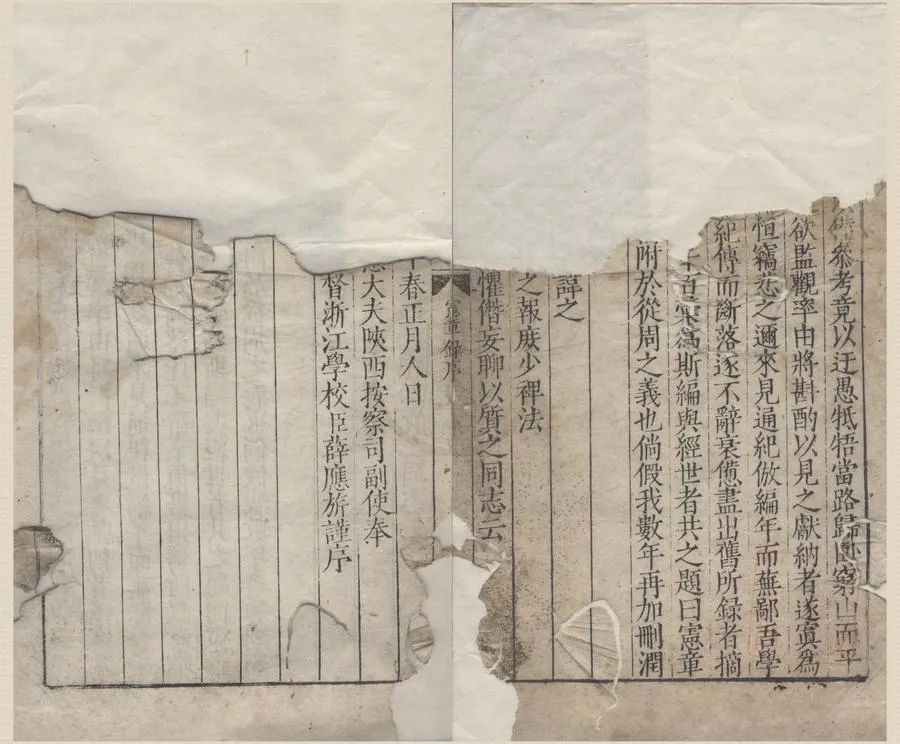 參考竟以迂愚牴牾當路歸臥窮山而平
欲監觀率由將斟酌以見之獻納者遂寘爲
恒竊悲之邇來見通紀倣編年而蕪鄙吾學
紀傳而斷落遂不辭衰憊盡出舊所録者摘
首彙爲斯編與經世者共之題曰憲章
附於從周之義也倘假我數年再加刪潤
諱之
之報庶少裨法
懼僭妄聊以質之同志云
憲章録序
春正月人日
大夫陝西按察司副使奉
督浙江學校臣薛應旂謹序